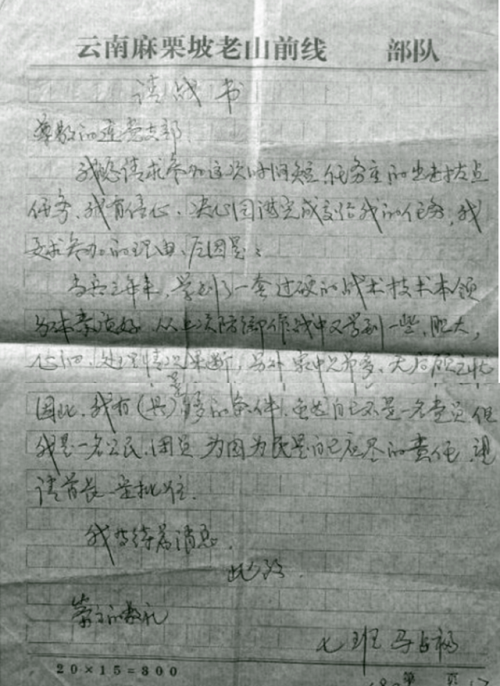 云南麻栗坡老山前线 部队
请战书
尊敬的连党支部
我恳请求参加这次时间短任务重的出击拔点
任务，我有信心、决心圆满完成交给我的任务，我
要求参加的理由、原因是：
当兵三年来，学到了一套过硬的战术技术本领
身体素质好 从上次防御作战中又学到一些，胆大，
心细、处理情况果断，另外 家中兄弟多，无后顾之忧
因此，我有（具）备的条件，虽然自己不是一名党员 但
我是一名公民、团员 为国为民是自己应尽的责任 望
请首长一定批准．
我等待着消息．
此致
崇高的敬礼
七班 马占福
20×15=300 第 页